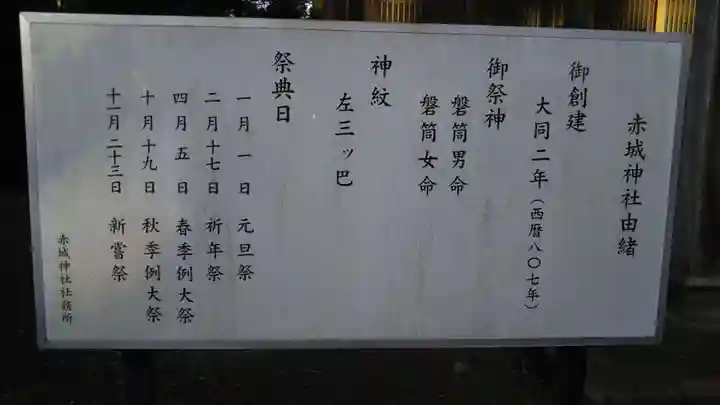 赤城神社由緒
御創建
大同二年（西暦八〇七年）
御祭神
磐筒男命
磐筒女命
神紋
左三ッ巴
祭典日
一月一日 元旦祭
二月十七日 祈年祭
四月五日 春季例大祭
十月十九日 秋季例大祭
十一月二十三日 新嘗祭
赤城神社社務所